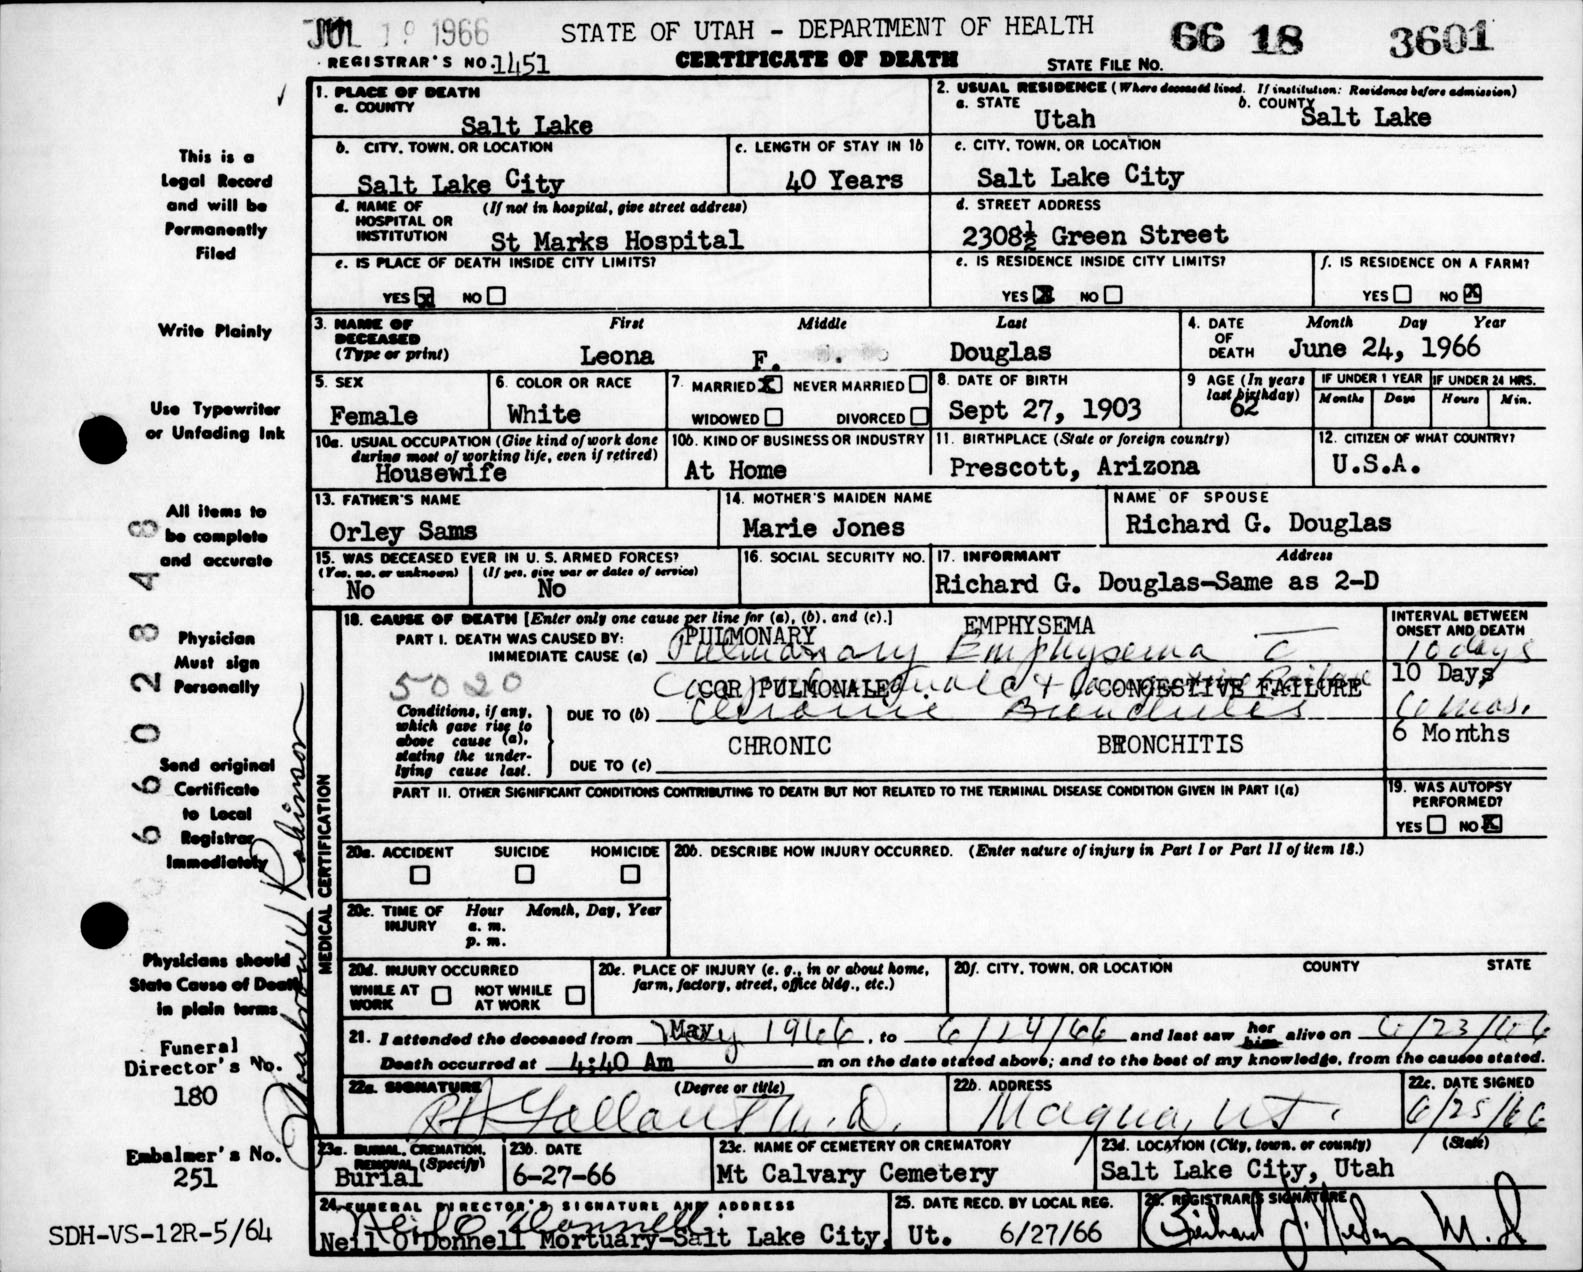 JUL 19 1966 STATE OF UTAH - DEPARTMENT OF HEALTH 66 18 3601
REGISTRAR'S NO. 1451 CERTIFICATE OF DEATH STATE FILE NO.
1. PLACE OF DEATH
a. COUNTY
Salt Lake
2. USUAL RESIDENCE (Where deceased lived. If institution: Residence before admission)
a. STATE Utah b. COUNTY Salt Lake
b. CITY, TOWN, OR LOCATION
Salt Lake City
c. LENGTH OF STAY IN 1b
40 Years
c. CITY, TOWN, OR LOCATION
Salt Lake City
d. NAME OF HOSPITAL OR INSTITUTION (If not in hospital, give street address)
St Marks Hospital
d. STREET ADDRESS
2308½ Green Street
e. IS PLACE OF DEATH INSIDE CITY LIMITS?
YES X NO
e. IS RESIDENCE INSIDE CITY LIMITS?
YES X NO
f. IS RESIDENCE ON A FARM?
YES NO X
3. NAME OF DECEASED (Type or print)
First Middle Last
Leona F. Douglas
4. DATE OF DEATH Month Day Year
June 24, 1966
5. SEX
Female
6. COLOR OR RACE
White
7. MARRIED X NEVER MARRIED
WIDOWED DIVORCED
8. DATE OF BIRTH
Sept 27, 1903
9 AGE (In years last birthday)
62
IF UNDER 1 YEAR
Months Days
IF UNDER 24 HRS.
Hours Min.
10a. USUAL OCCUPATION (Give kind of work done during most of working life, even if retired)
Housewife
10b. KIND OF BUSINESS OR INDUSTRY
At Home
11. BIRTHPLACE (State or foreign country)
Prescott, Arizona
12. CITIZEN OF WHAT COUNTRY?
U.S.A.
13. FATHER'S NAME
Orley Sams
14. MOTHER'S MAIDEN NAME
Marie Jones
NAME OF SPOUSE
Richard G. Douglas
15. WAS DECEASED EVER IN U. S. ARMED FORCES?
(Yes, no, or unknown) (If yes, give war or dates of service)
No No
16. SOCIAL SECURITY NO.
17. INFORMANT Address
Richard G. Douglas-Same as 2-D
18. CAUSE OF DEATH [Enter only one cause per line for (a), (b), and (c).]
PART I. DEATH WAS CAUSED BY:
IMMEDIATE CAUSE (a) PULMONARY EMPHYSEMA
Pulmonary Emphysema
INTERVAL BETWEEN ONSET AND DEATH
10 days
5020
COR PULMONALE CONGESTIVE FAILURE
10 Days
Conditions, if any, which gave rise to above cause (a), stating the underlying cause last.
DUE TO (b) Chronic Bronchitis
6 mos.
CHRONIC BRONCHITIS
6 Months
DUE TO (c)
PART II. OTHER SIGNIFICANT CONDITIONS CONTRIBUTING TO DEATH BUT NOT RELATED TO THE TERMINAL DISEASE CONDITION GIVEN IN PART I(a)
19. WAS AUTOPSY PERFORMED?
YES NO X
MEDICAL CERTIFICATION
20a. ACCIDENT SUICIDE HOMICIDE
20b. DESCRIBE HOW INJURY OCCURRED. (Enter nature of injury in Part I or Part II of item 18.)
20c. TIME OF INJURY Hour Month, Day, Year
a. m.
p. m.
20d. INJURY OCCURRED
WHILE AT WORK NOT WHILE AT WORK
20e. PLACE OF INJURY (e. g., in or about home, farm, factory, street, office bldg., etc.)
20f. CITY, TOWN, OR LOCATION COUNTY STATE
21. I attended the deceased from May 1966, to 6/24/66 and last saw her him alive on 6/23/66
Death occurred at 4:40 Am m on the date stated above; and to the best of my knowledge, from the causes stated.
22a. SIGNATURE (Degree or title)
M.D.
22b. ADDRESS
Magna, Ut.
22c. DATE SIGNED
6/25/66
23a. BURIAL, CREMATION, REMOVAL (Specify)
Burial
23b. DATE
6-27-66
23c. NAME OF CEMETERY OR CREMATORY
Mt Calvary Cemetery
23d. LOCATION (City, town, or county) (State)
Salt Lake City, Utah
24. FUNERAL DIRECTOR'S SIGNATURE AND ADDRESS
Neil O'Donnell
Neil O'Donnell Mortuary-Salt Lake City, Ut.
25. DATE RECD. BY LOCAL REG.
6/27/66
26. REGISTRAR'S SIGNATURE
M.D.
This is a
Legal Record
and will be
Permanently
Filed
Write Plainly
Use Typewriter
or Unfading Ink
All items to
be complete
and accurate
Physician
Must sign
Personally
Send original
Certificate
to Local
Registrar
Immediately
Physicians should
State Cause of Death
in plain terms
Funeral
Director's No.
180
Embalmer's No.
251
SDH-VS-12R-5/64
660 2848
Robinson